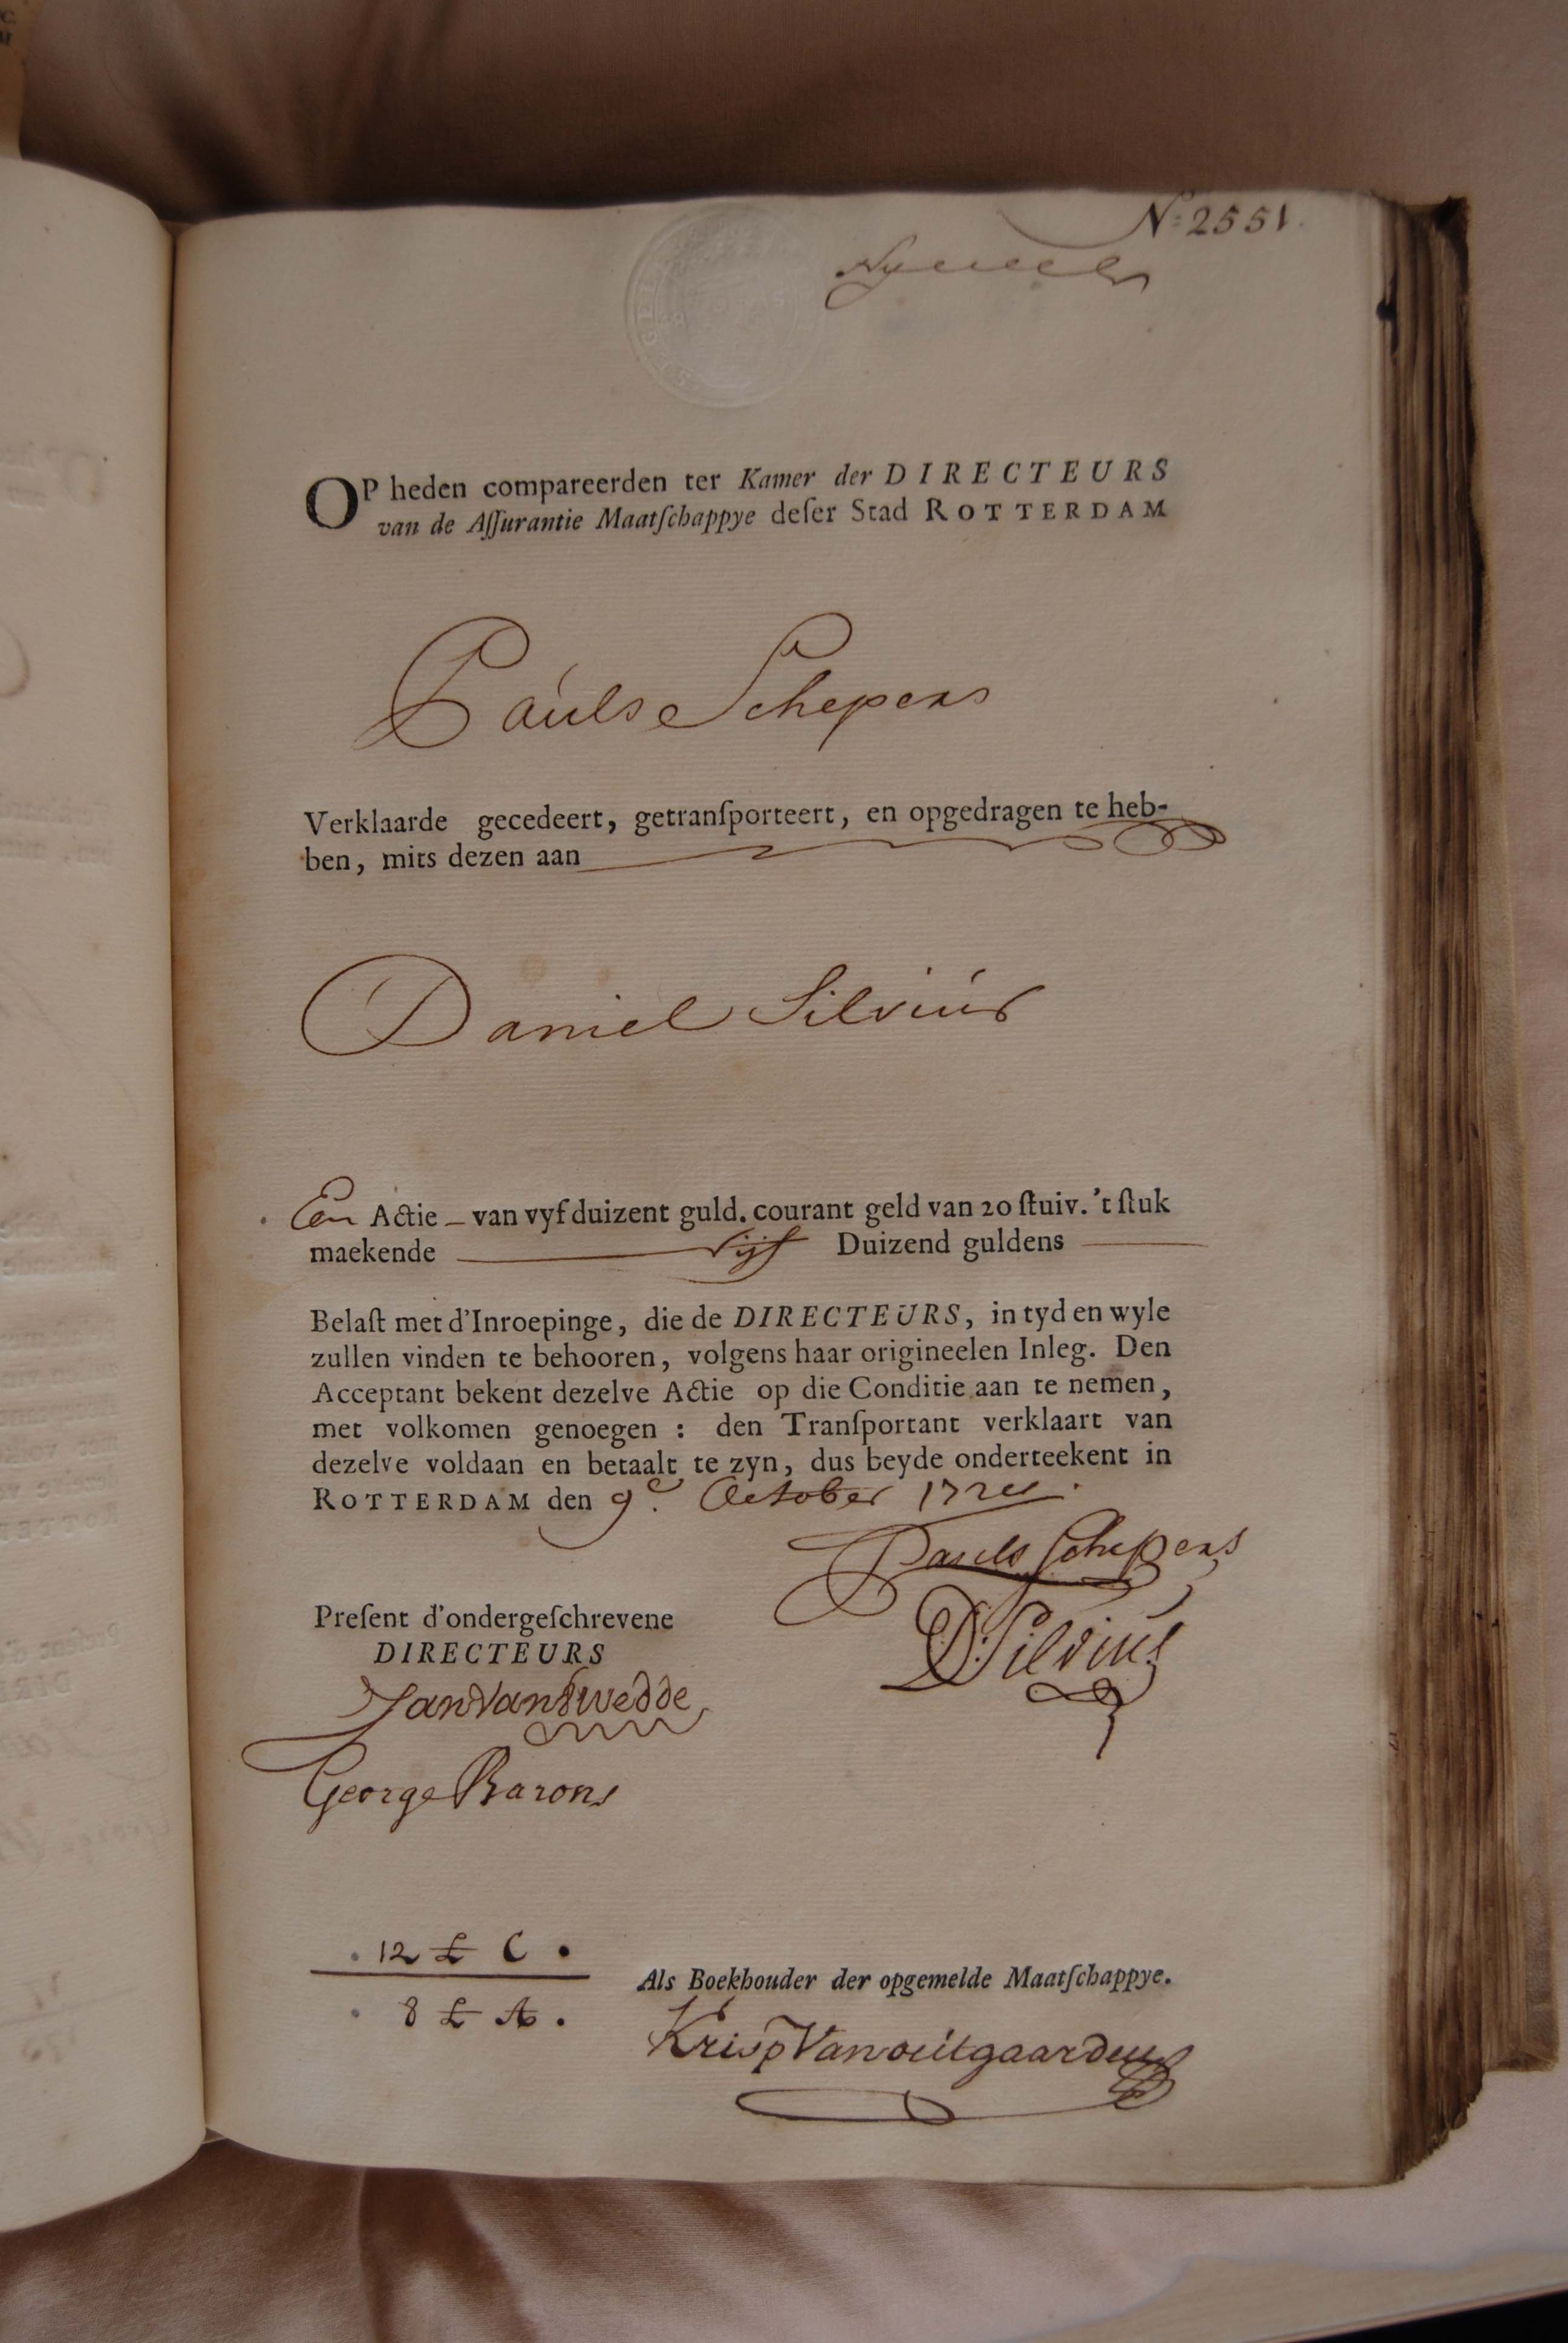 N: 2551.
OP heden compareerden ter Kamer der DIRECTEURS
van de Aſſurantie Maatſchappye deſer Stad ROTTERDAM
Pauls Schepers
Verklaarde gecedeert, getranſporteert, en opgedragen te heb-
ben, mits dezen aan
Daniel Silvius
Een Actie - van vyf duizent guld. courant geld van 20 ſtuiv. 't ſtuk
maekende Vijf Duizend guldens
Belaſt met d'Inroepinge, die de DIRECTEURS, in tyd en wyle
zullen vinden te behooren, volgens haar origineelen Inleg. Den
Acceptant bekent dezelve Actie op die Conditie aan te nemen,
met volkomen genoegen : den Tranſportant verklaart van
dezelve voldaan en betaalt te zyn, dus beyde onderteekent in
ROTTERDAM den 9e. October
Pauls Schepers
D: Silvius
Preſent d'ondergeſchrevene
DIRECTEURS
Jan van Twedde
George Barons
12 £ C.
8 £ A.
Als Boekhouder der opgemelde Maatſchappye.
Krisp Van outgaarden